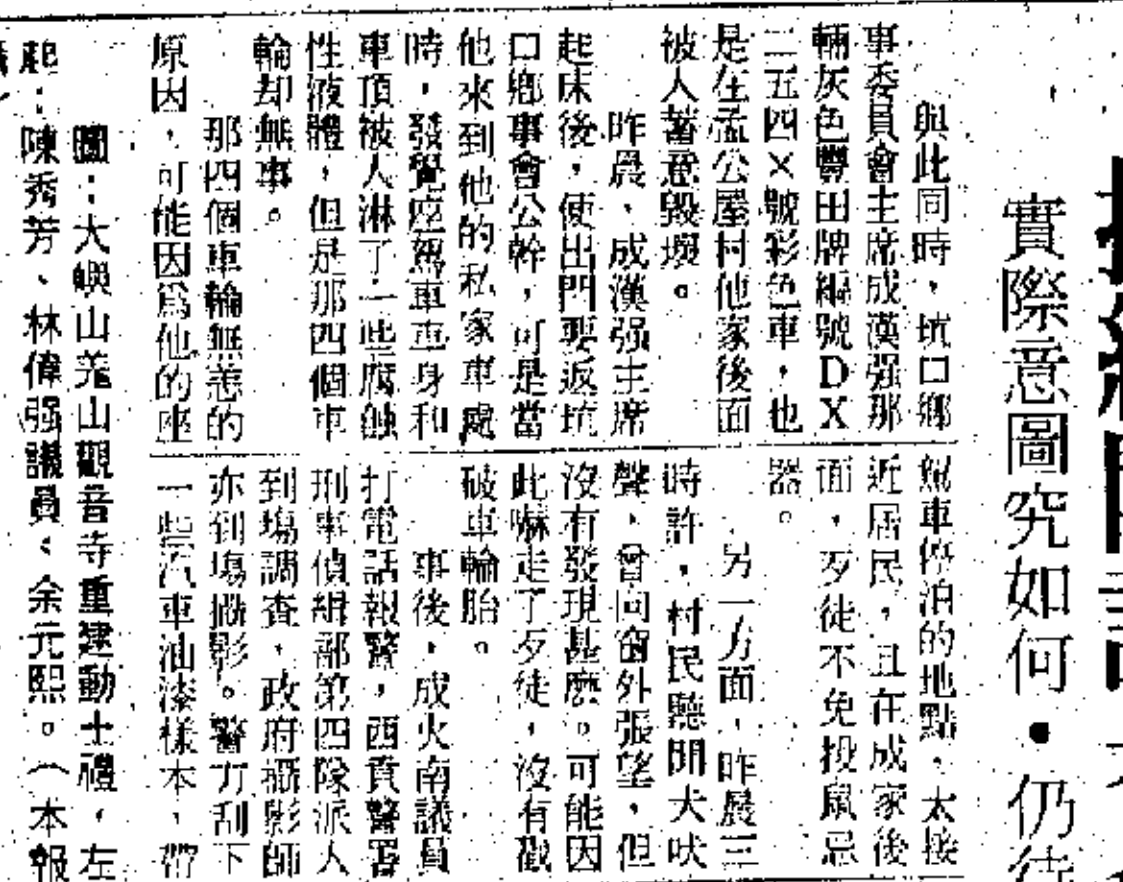 實際意圖究如何•仍待
與此同時，坑口鄉
事委員會主席成漢强那
輛灰色豐田牌編號DX
二五四×號彩色車，也
是在孟公屋村他家後面
被人蓄意毀壞。
昨晨，成漢强主席
起床後，使出門要返坑
口鄉事會公幹，可是當
他來到他的私家車處
時，發覺座駕車車身和
車頂被人淋了一些腐蝕
性液體，但是那四個車
輪却無事。
那四個車輪無恙的
原因，可能因爲他的座
駕車停泊的地點，太接
近居民，且在成家後
面，歹徒不免投鼠忌
器。
另一方面，昨晨三
時許，村民聽聞犬吠
聲，曾向窗外張望，但
沒有發現甚麽。可能因
此嚇走了歹徒，沒有戳
破車輪胎。
事後，成火南議員
打電話報警，西貢警署
刑事偵緝部第四隊派人
到塲調查，政府攝影師
亦到塲攝影。警方刮下
一些汽車油漆樣本，帶
圖：大嶼山羗山觀音寺重建動土禮，左
起：陳秀芳、林偉强議員、余元熙。（本報